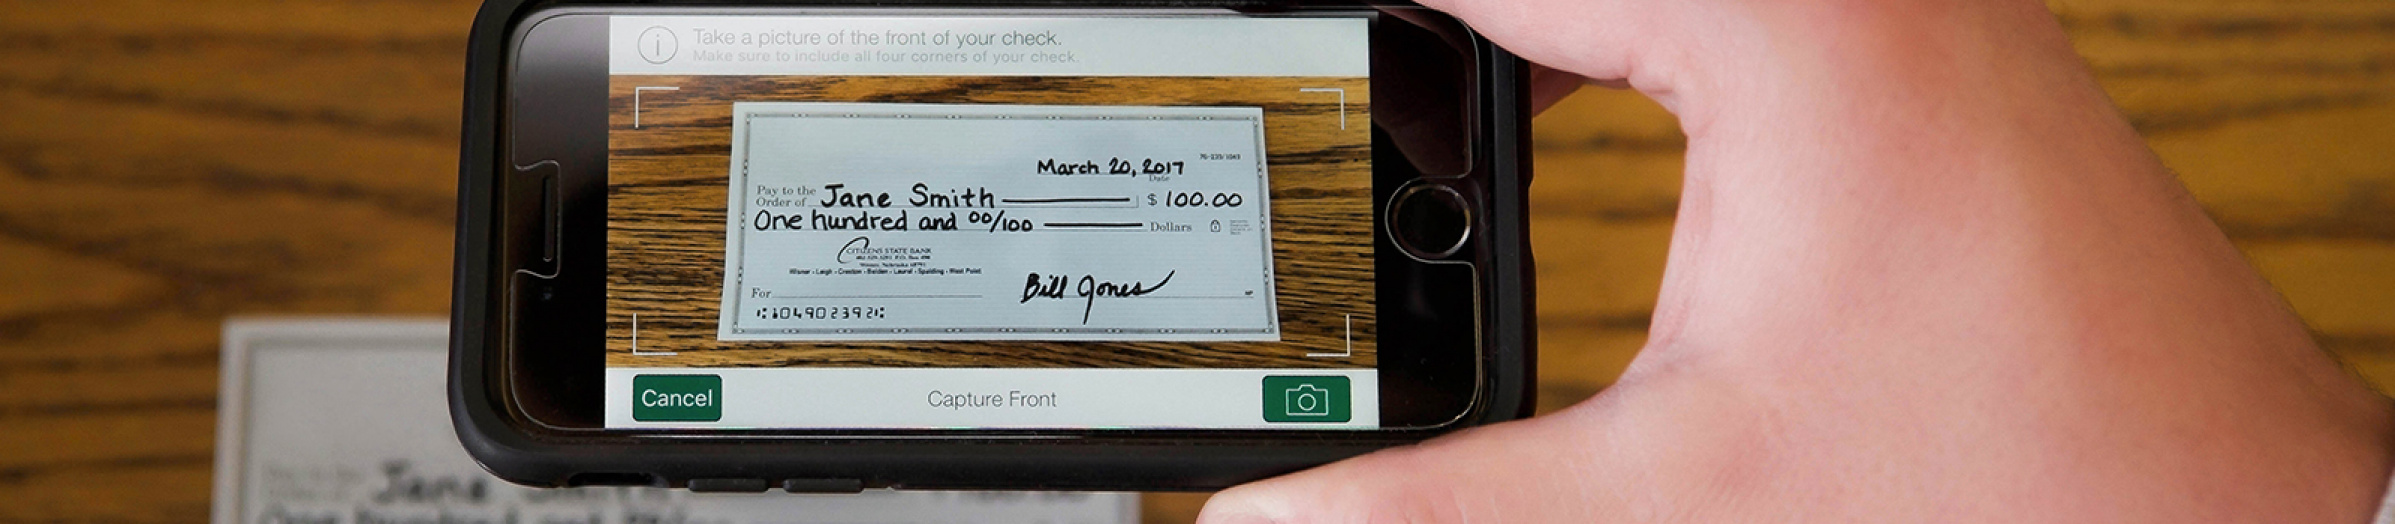 Take a picture of the front of your check.
Make sure to include all four corners of your check.
76-239/1049
March 20, 2017
Date
Pay to the
Order of Jane Smith $ 100.00
One hundred and 00/100 Dollars
CITIZENS STATE BANK
Wisner - Leigh - Creston - Belden - Laurel - Spalding - West Point
For Bill Jones
MP
⑆104902392⑆
Cancel Capture Front
Jane